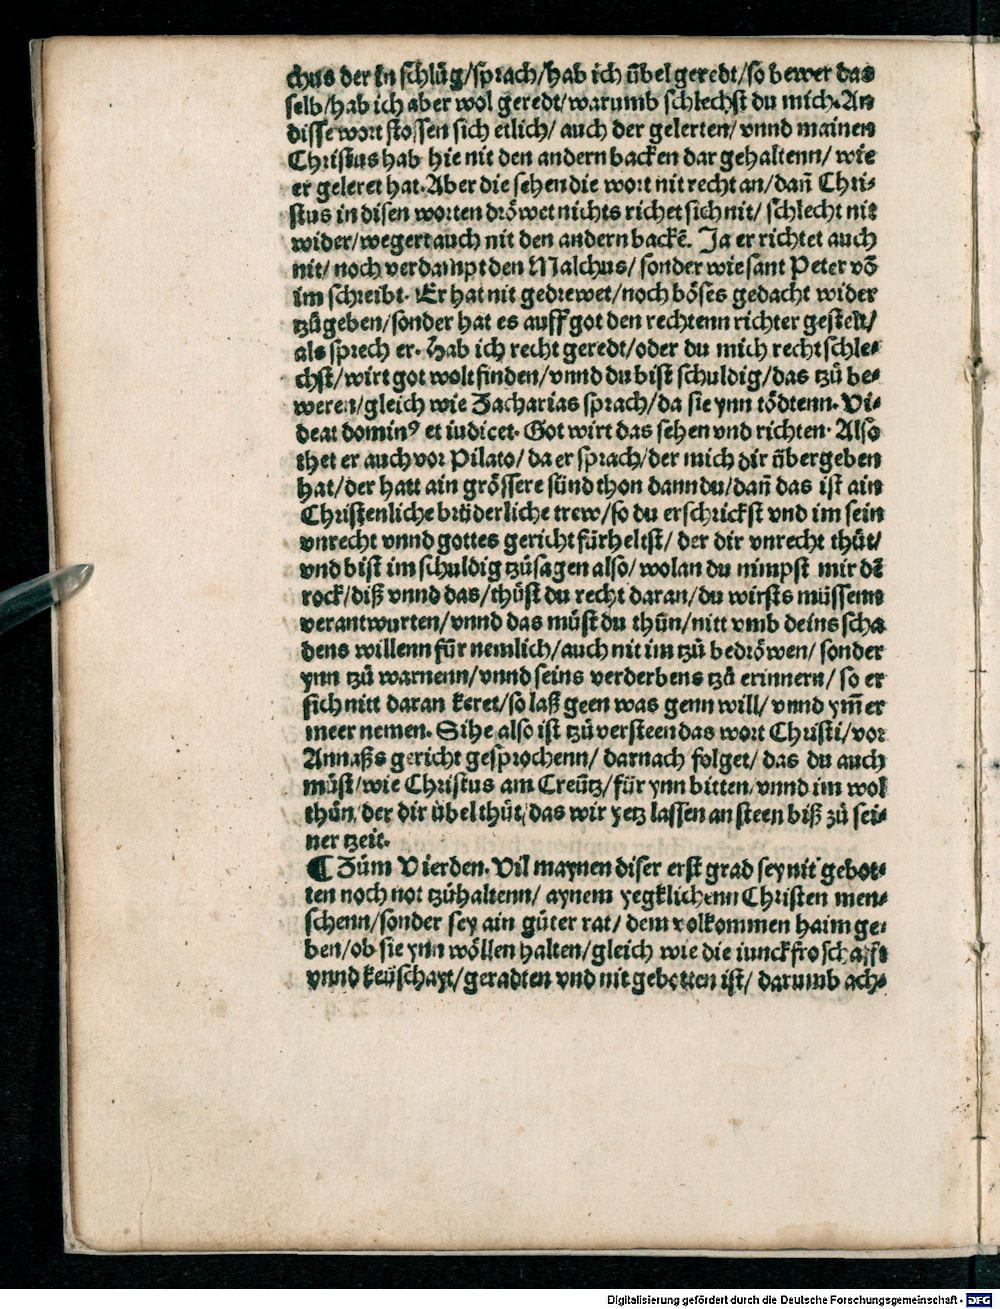 chus der in schlůg/sprach/hab ich übel geredt/so bewer das
selb/hab ich aber wol geredt/warumb schlechst du mich. An
disse wort stossen sich etlich/ auch der gelerten/ vnnd mainen
Christus hab hie nit den andern backen dar gehaltenn/ wie
er geleret hat. Aber die sehen die wort nit recht an/dañ Chri-
stus in disen worten dröwet nichts richet sich nit/ schlecht nit
wider/wegert auch nit den andern backẽ. Ja er richtet auch
nit/ noch verdampt den Malchus/ sonder wie sant Peter võ
im schreibt. Er hat nit gedrewet/noch böses gedacht wider
tzůgeben/sonder hat es auff got den rechtenn richter gestelt/
als sprech er. Hab ich recht geredt/oder du mich recht schle-
chst/wirt got wolt finden/vnnd du bist schuldig/das tzů be-
weren/gleich wie Zacharias sprach/da sie ynn tödtenn. Vi-
deat dominꝰ et iudicet. Got wirt das sehen vnd richten. Also
thet er auch vor Pilato/ da er sprach/der mich dir übergeben
hat/der hatt ain grössere sünd thon dann du/dañ das ist ain
Christenliche brüderliche trew/so du erschrickst vnd im sein
vnrecht vnnd gottes gericht fürheltst/ der dir vnrecht thůt/
vnd bist im schuldig tzůsagen also/ wolan du nimpst mir dẽ
rock/diß vnnd das/thůst du recht daran/du wirsts müssenn
verantwurten/vnnd das můst du thůn/nitt vmb deins scha
dens willenn für nemlich/auch nit im tzů bedröwen/ sonder
ynn tzů warnenn/vnnd seins verderbens tzů erinnern/ so er
sich nitt daran keret/so laß geen was genn will/ vnnd ym̃er
meer nemen. Sihe also ist tzů versteen das wort Christi/vor
Annaßs gericht gesprochenn/ darnach folget/ das du auch
můst/wie Christus am Creütz/für ynn bitten/vnnd im wol
thůn/der dir übel thůt/das wir yetz lassen an steen biß zů sei-
ner tzeit.
¶ Zům Vierden. Vil maynen diser erst grad sey nit gebot-
ten noch not tzůhaltenn/ aynem yegklichenn Christen men-
schenn/sonder sey ain gůter rat/ dem volkommen haim ge-
ben/ob sie ynn wöllen halten/gleich wie die iunckfroschafft
vnnd keüschayt/geradten vnd nit gebotten ist/ darumb ach-
Digitalisierung gefördert durch die Deutsche Forschungsgemeinschaft - DFG